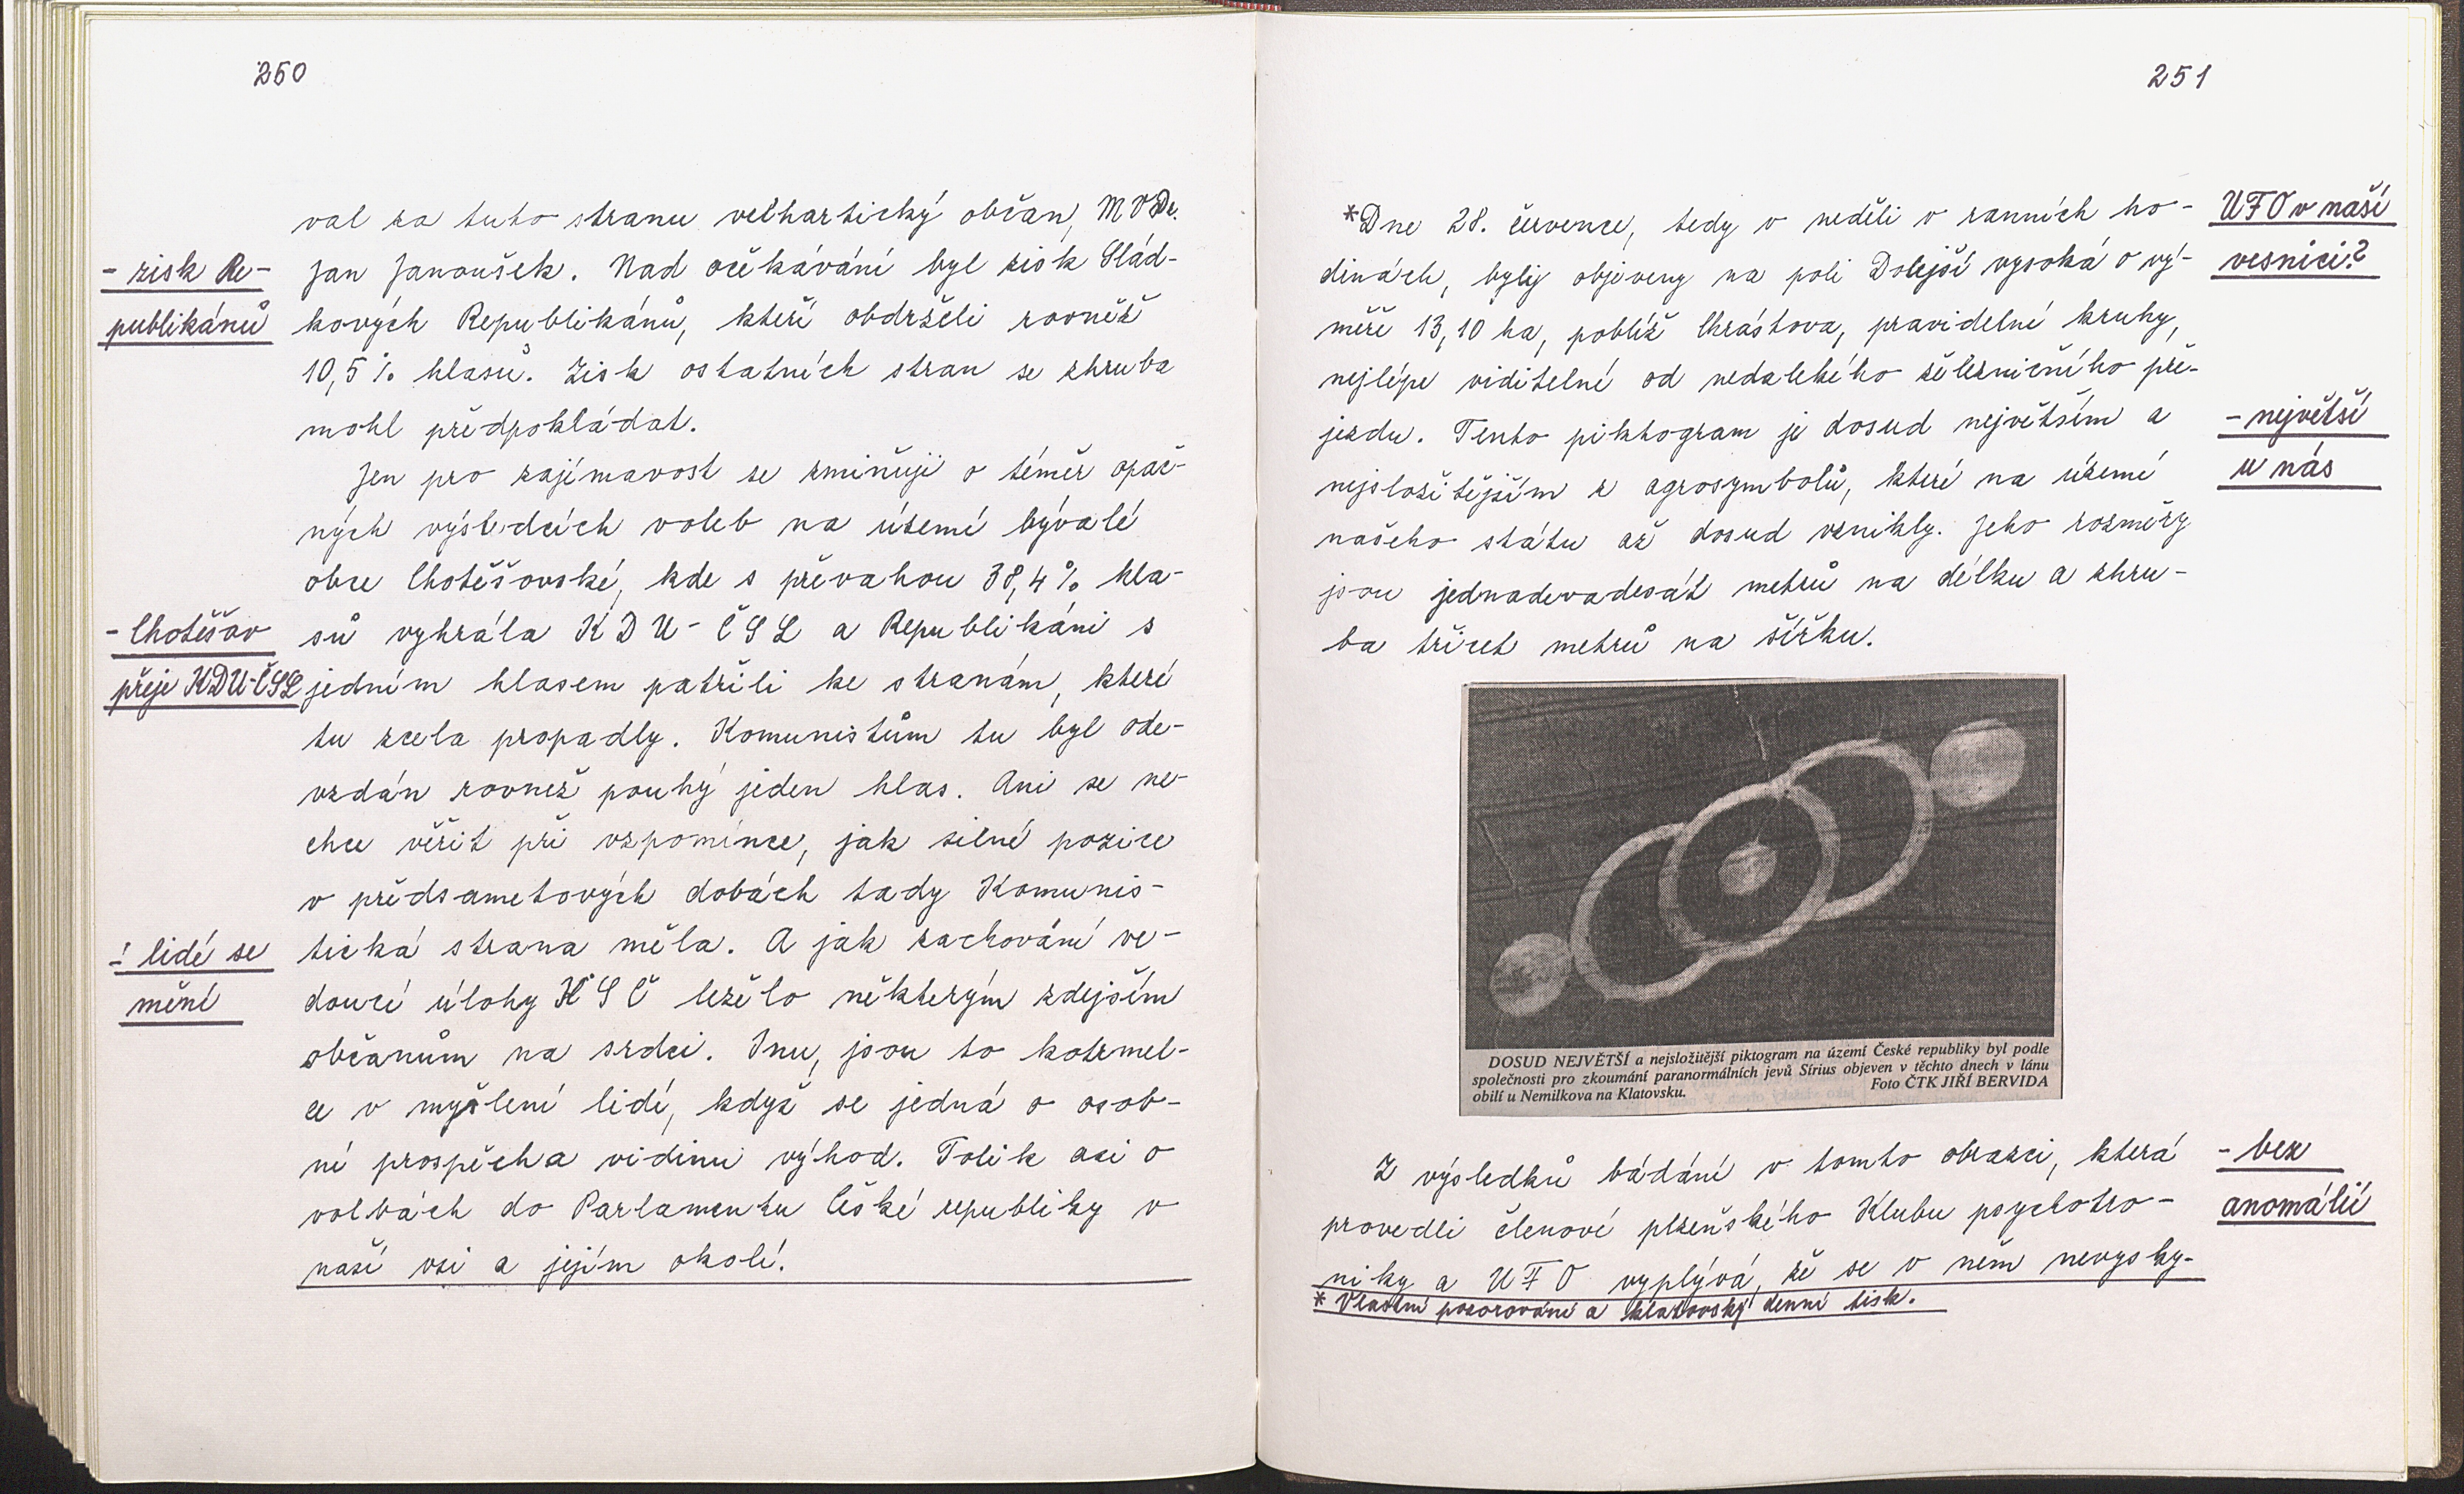 250
val za tuto stranu velhartický občan, MVDr.
- zisk Re-
publikánů
Jan Janoušek. Nad očekávání byl zisk Slád-
kových Republikánů, kteří obdrželi rovněž
10,5 % hlasů. Zisk ostatních stran se zhruba
mohl předpokládat.
Jen pro zajímavost se zmiňuji o téměř opač-
ných výsledcích voleb na území bývalé
obce Chotěšovské, kde s převahou 38,4 % hla-
- Chotěšov
přeje KDU-ČSL
sů vyhrála KDU-ČSL a Republikáni s
jedním hlasem patřili ke stranám, které
tu zcela propadly. Komunistům tu byl ode-
vzdán rovněž pouhý jeden hlas. Ani se ne-
chce věřit při vzpomínce, jak silné pozice
v předsametových dobách tady Komunis-
- lidé se
mění
tická strana měla. A jak zachování ve-
doucí úlohy KSČ leželo některým zdejším
občanům na srdci. Inu, jsou to kotrmel-
ce v myšlení lidí, když se jedná o osob-
ní prospěch a vidinu výhod. Tolik asi o
volbách do Parlamentu České republiky v
naší vsi a jejím okolí.
251
*Dne 28. července, tedy v neděli v ranních ho-
UFO v naší
vesnici?
dinách, byly objeveny na poli Dolejší vysoká o vý-
měře 13,10 ha, poblíž Chrástova, pravidelné kruhy,
nejlépe viditelné od nedalekého železničního pře-
jezdu. Tento piktogram je dosud největším a
- největší
u nás
nejsložitějším z agrosymbolů, které na území
našeho státu až dosud vznikly. Jeho rozměry
jsou jednadevadesát metrů na délku a zhru-
ba třicet metrů na šířku.
DOSUD NEJVĚTŠÍ a nejsložitější piktogram na území České republiky byl podle
společnosti pro zkoumání paranormálních jevů Sírius objeven v těchto dnech v lánu
obilí u Nemilkova na Klatovsku. Foto ČTK JIŘÍ BERVIDA
Z výsledků bádání v tomto obrazci, která
- bez
anomálií
provedli členové plzeňského Klubu psychotro-
niky a UFO vyplývá, že se v něm nevysky-
* Vlastní pozorování a klatovský denní tisk.